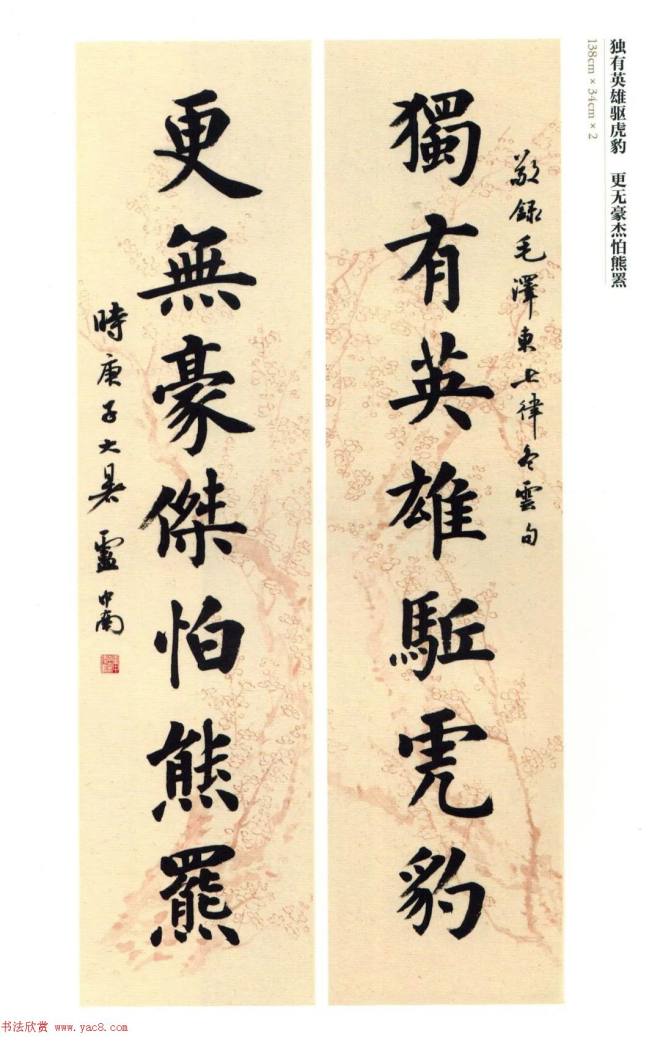 独有英雄驱虎豹　更无豪杰怕熊罴
138cm×34cm×2
敬録毛澤東七律冬雲句
獨有英雄駈虎豹
更無豪傑怕熊羆
時庚子大暑盧中南
书法欣赏 www.yac8.com